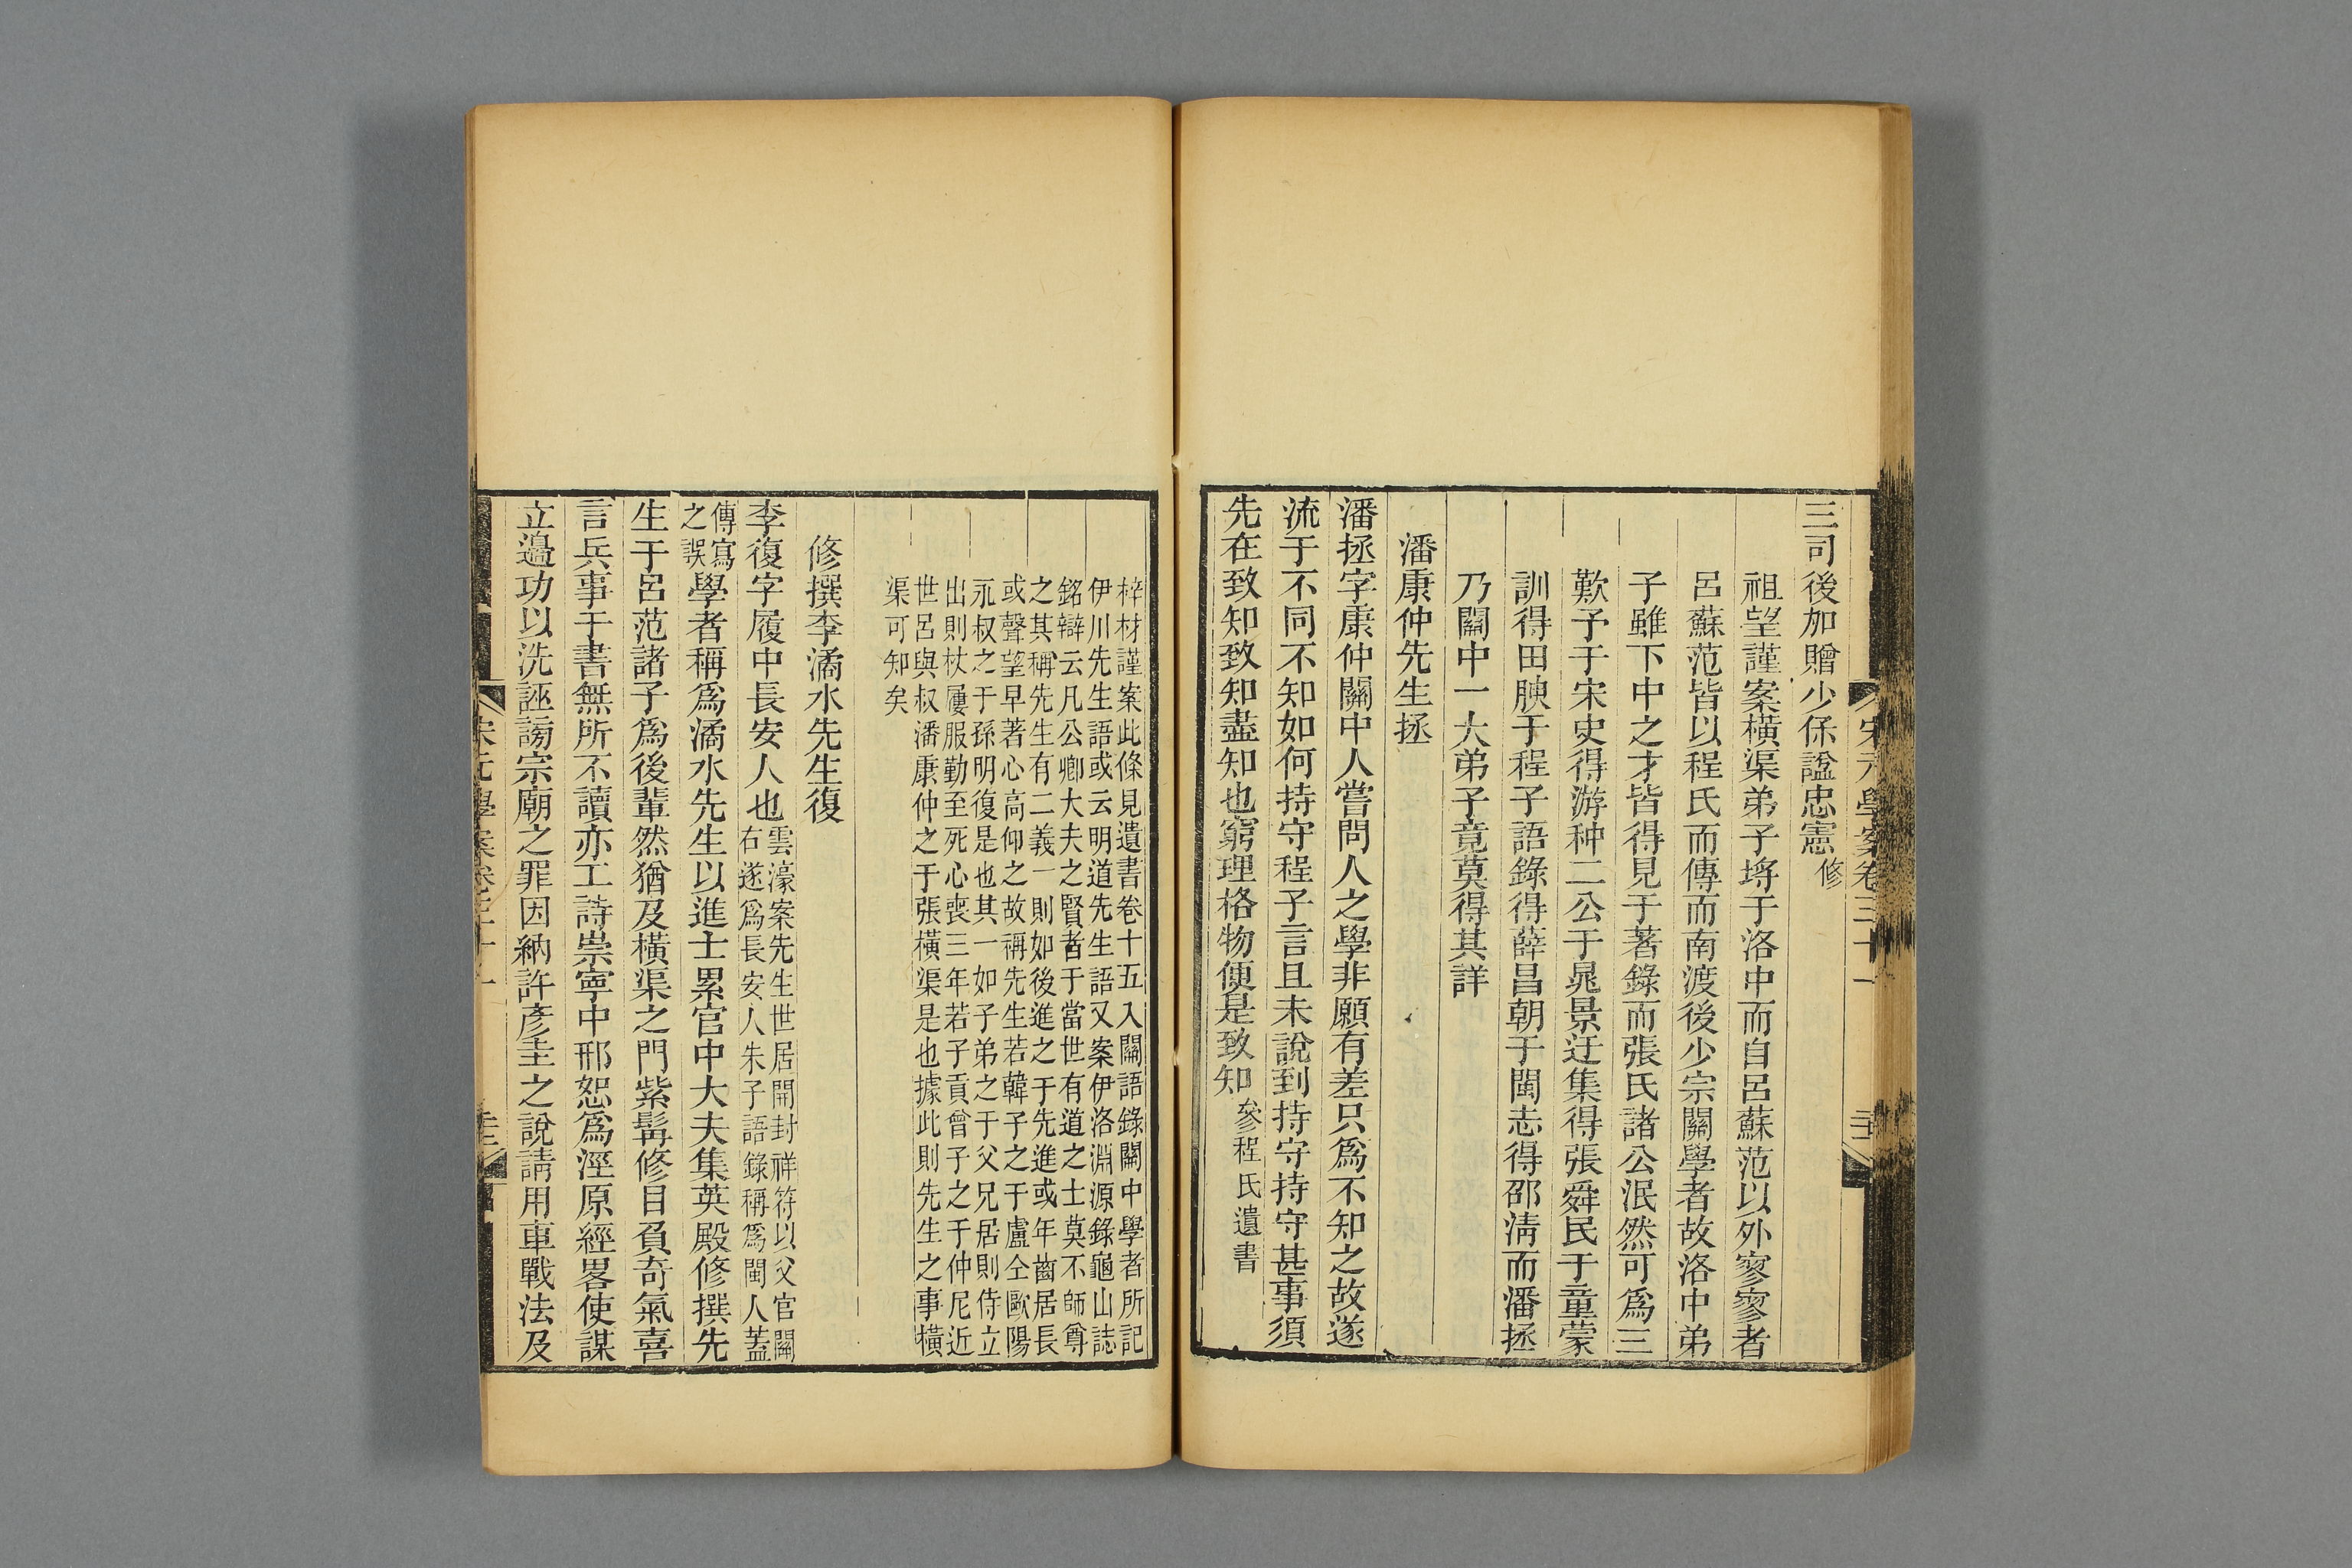 宋元學案卷三十一
三司後加贈少保諡忠憲修
祖望謹案橫渠弟子埒于洛中而自呂蘇范以外寥寥者
呂蘇范皆以程氏而傳而南渡後少宗關學者故洛中弟
子雖下中之才皆得見于著錄而張氏諸公泯然可爲三
歎予于宋史得游种二公于晁景迂集得張舜民于童蒙
訓得田腴于程子語錄得薛昌朝于閩志得邵淸而潘拯
乃關中一大弟子竟莫得其詳
潘康仲先生拯
潘拯字康仲關中人嘗問人之學非願有差只爲不知之故遂
流于不同不知如何持守程子言且未說到持守持守甚事須
先在致知致知盡知也窮理格物便是致知參程氏遺書
梓材謹案此條見遺書卷十五入關語錄關中學者所記
伊川先生語或云明道先生語又案伊洛淵源錄龜山誌
銘辯云凡公卿大夫之賢者于當世有道之士莫不師尊
之其稱先生有二義一則如後進之于先進或年齒居長
或聲望早著心高仰之故稱先生若韓子之于盧仝歐陽
永叔之于孫明復是也其一如子弟之于父兄居則侍立
出則杖屨服勤至死心喪三年若子貢曾子之于仲尼近
世呂與叔潘康仲之于張橫渠是也據此則先生之事橫
渠可知矣
修撰李潏水先生復
李復字履中長安人也雲濠案先生世居開封祥符以父官關
右遂爲長安人朱子語錄稱爲閩人蓋
傳寫
之誤學者稱爲潏水先生以進士累官中大夫集英殿修撰先
生于呂范諸子爲後輩然猶及橫渠之門紫髯修目負奇氣喜
言兵事于書無所不讀亦工詩崇寧中邢恕爲涇原經畧使謀
立邊功以洗誣謗宗廟之罪因納許彥圭之說請用車戰法及
宋元學案卷三十一